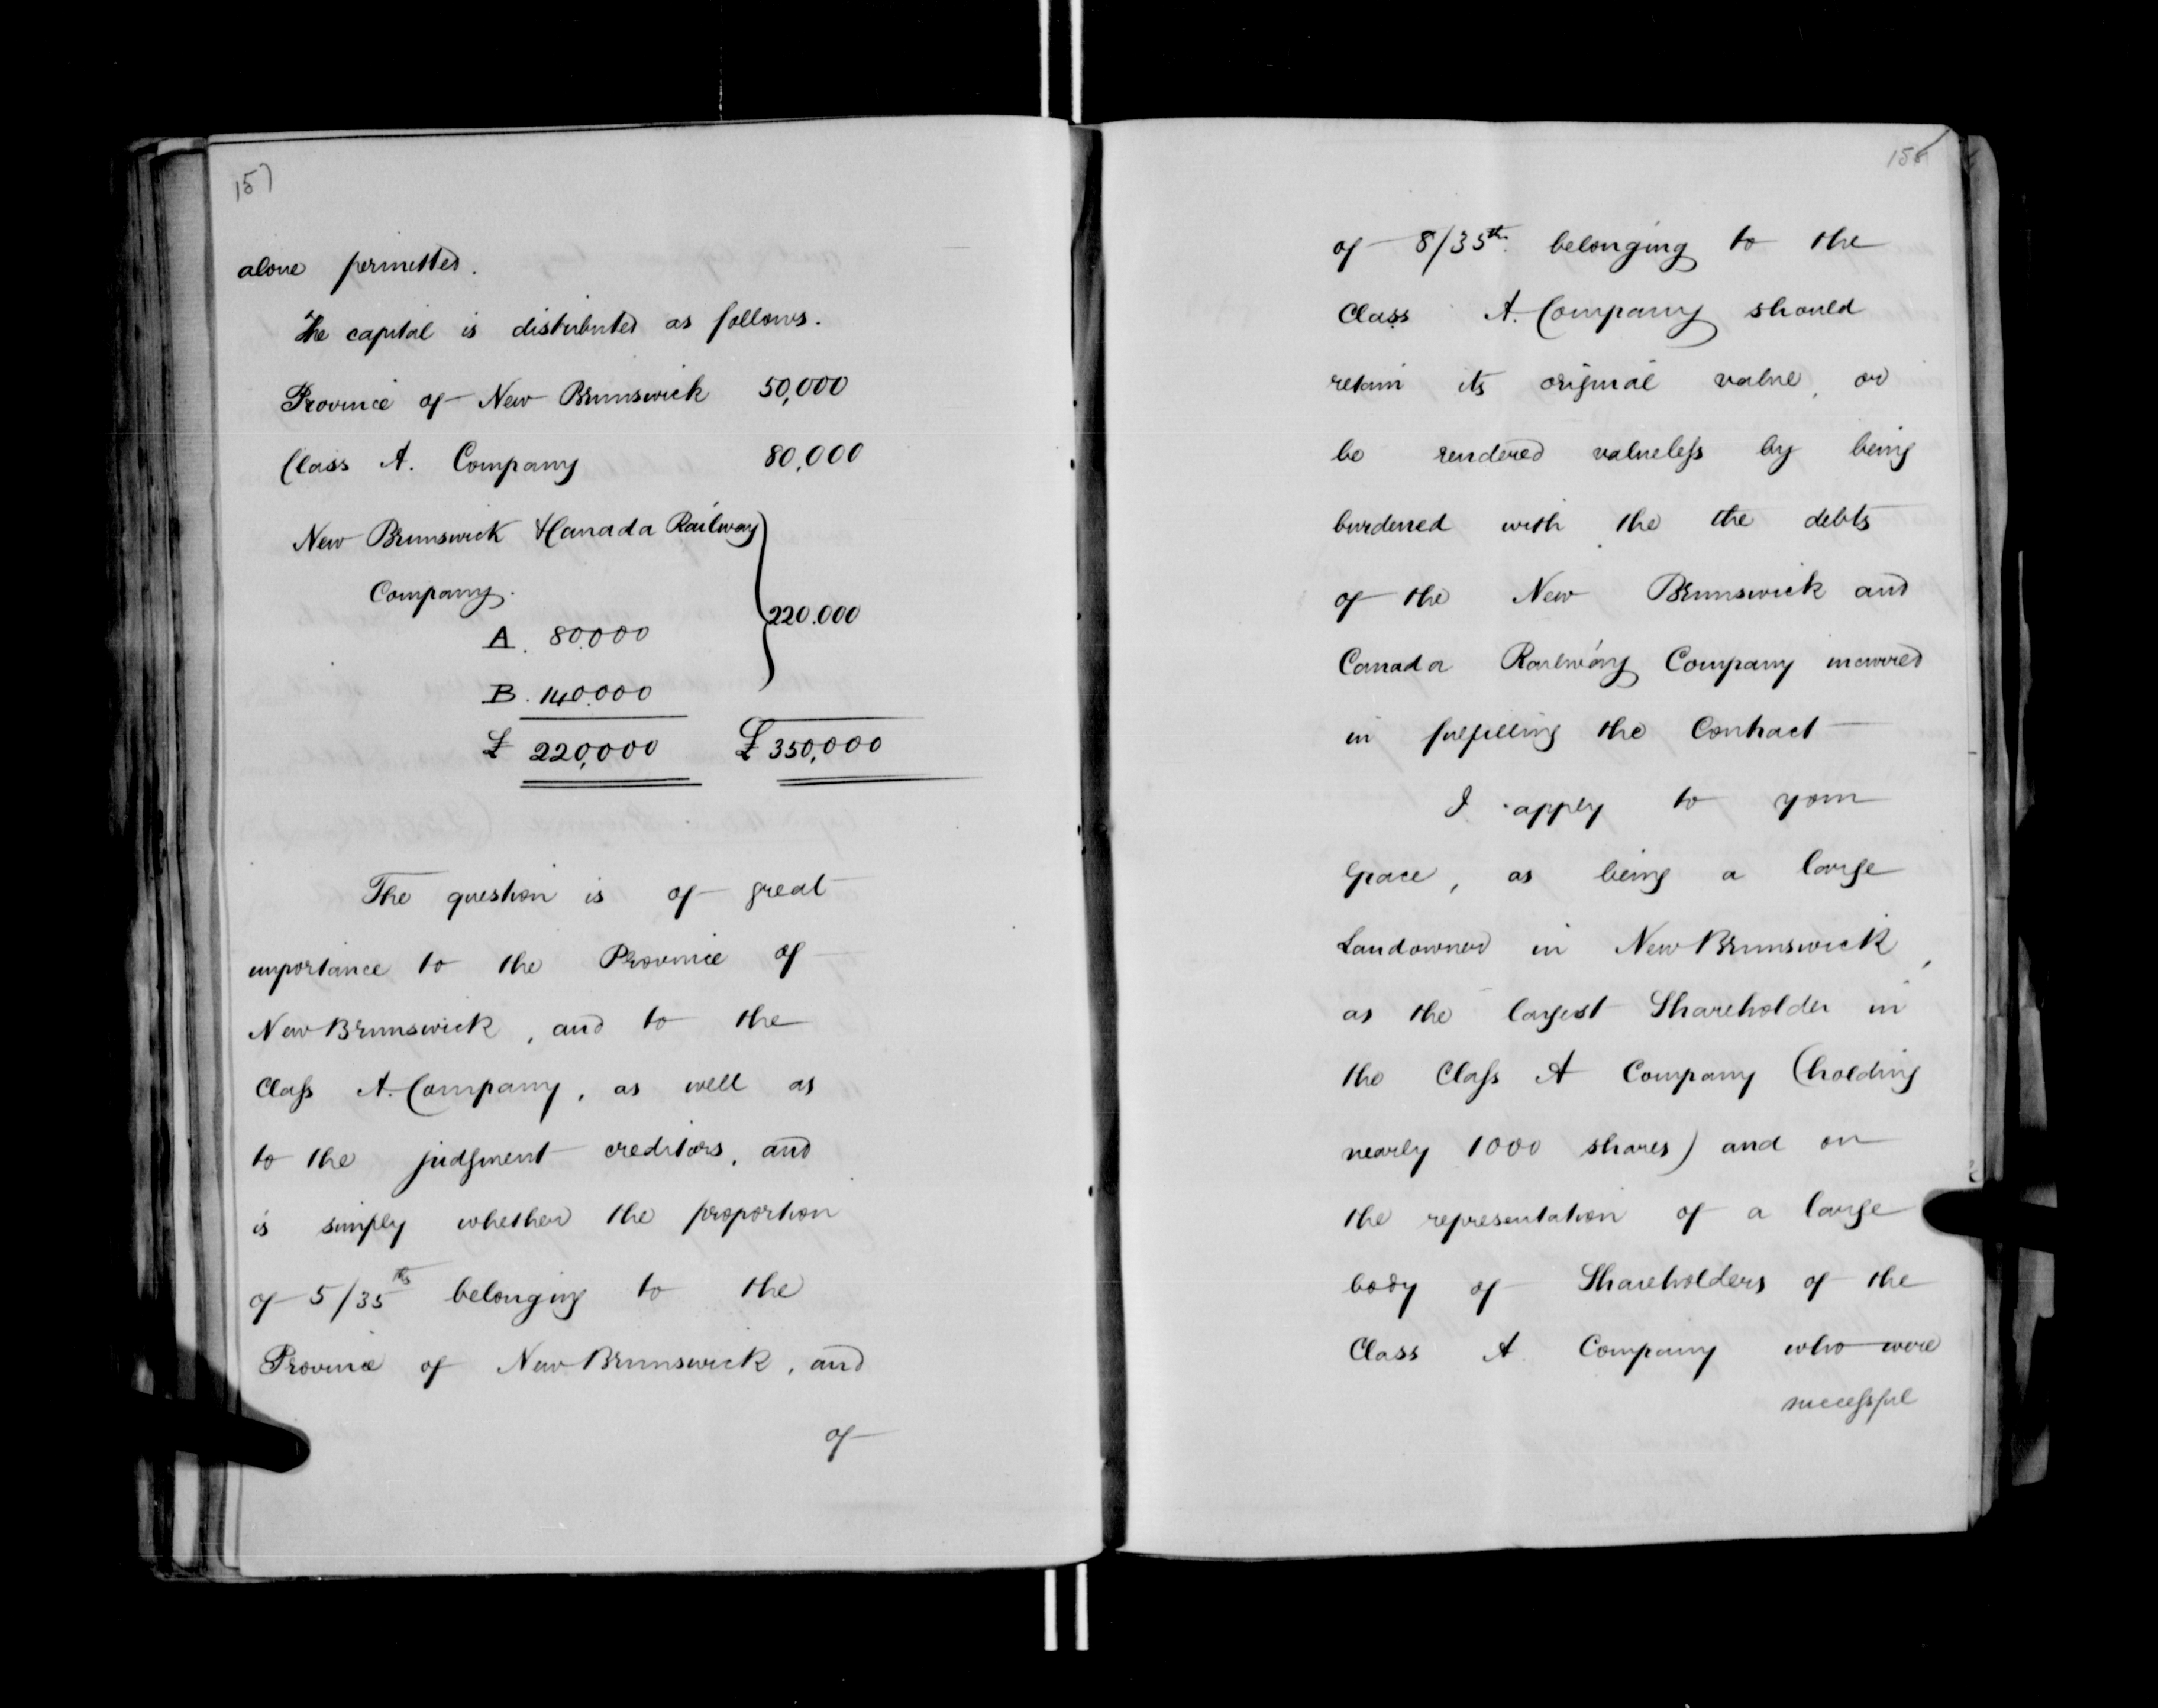 157
alone permitted.
The capital is distributed as follows.
Province of New Brunswick 50,000
Class A. Company 80,000
New Brunswick & Canada Railway
Company.
220.000
A. 80.000
B. 140.000
£ 220,000 £ 350,000
The question is of great
importance to the Province of
New Brunswick, and to the
Class A. Company, as well as
to the judgment creditors, and
is simply whether the proportion
of 5/35ths belonging to the
Province of New Brunswick, and
of
158
of 8/35th. belonging to the
Class A. Company should
retain its original value, or
be rendered valueless by being
burdened with the the debts
of the New Brunswick and
Canada Railway Company incurred
in fulfilling the Contract
I apply to your
Grace, as being a large
Landowner in New Brunswick,
as the largest Shareholder in
the Class A Company (holding
nearly 1000 shares) and on
the representation of a large
body of Shareholders of the
Class A Company who were
successful